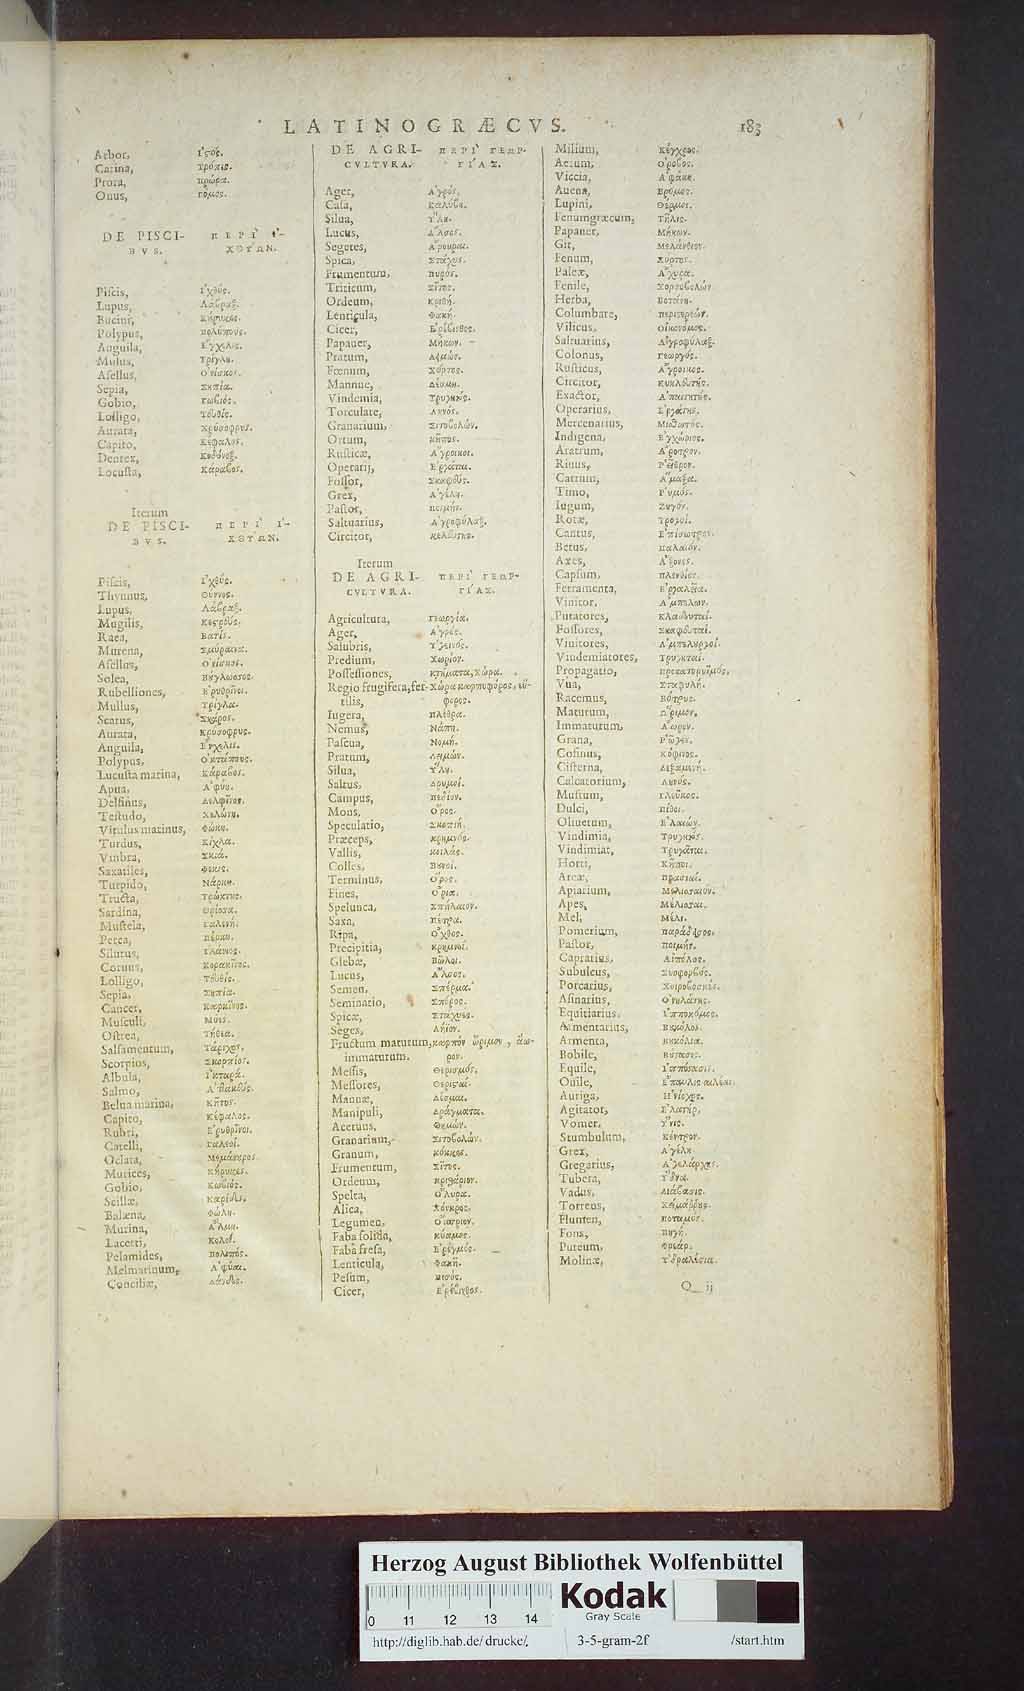 LATINOGRÆCVS. 183
Arbor, ἱϛός.
Carina, τρόπις.
Prora, πρώρα.
Onus, γόμος.
DE PISCI-
BVS.
ΠΕΡΙ` Ι᾿-
ΧΘΥΩΝ.
Piſcis, ἰχθύς.
Lupus, Λάβραξ.
Bucini, Κήρυκες.
Polypus, πολύπους.
Anguila, Ἔγχελις.
Mulus, τρίγλη.
Aſellus, Ὀνίσκος.
Sepia, Σηπία.
Gobio, κωβιός.
Lolligo, Τευθίς.
Aurata, χρύσοφρυς.
Capito, Κέφαλος.
Dentex,
Locuſta, Κάραβος.
Iterum
DE PISCI-
BVS.
ΠΕΡΙ` Ι᾿-
ΧΘΥΩΝ.
Piſcis, ἰχθύς.
Thynnus, Θύννος.
Lupus, Λάβραξ.
Mugilis, Κεϛρεύς.
Raea, Βατίς.
Murena, Σμύραινα.
Aſellus, Ὀνίσκος.
Solea, Βούγλωσσος.
Rubelliones, Ἐρυθρῖνοι.
Mullus, Τρίγλα.
Scarus, Σκάρος.
Aurata, Κρύσοφρυς.
Anguila, Ἔγχελις.
Polypus, Ὀκτάπους.
Lucuſta marina, Κάραβος.
Apua, Ἀφύη.
Delfinus, Δελφῖνος.
Teſtudo, Χελώνη.
Vitulus marinus, Φώκη.
Turdus, Κίχλα.
Vmbra, Σκιά.
Saxatiles, Φυκίς.
Turpido, Νάρκη.
Tructa, Τρώκτης.
Sardina, Θρίσσα.
Muſtela, Γαλεινή.
Perca, πέρκη.
Silurus, Γλάνιος.
Coruus, Κορακῖνος.
Lolligo, Τευθίς.
Sepia, Σηπία.
Cancer, Καρκῖνος.
Muſculi, Μύες.
Oſtrea, Τήθεα.
Salſamentum, Τάριχος.
Scorpios, Σκορπίος.
Albula, Ἰκταρά.
Salmo,
Belua marina, Κῆτος.
Capito, Κέφαλος.
Rubri, Ἐρυθρῖνοι.
Catelli, Γαλεοί.
Oclata,
Murices, Κήρυκες.
Gobio, Κωβιός.
Scillæ, Καρίδες.
Balæna, Φώλη.
Murina, Ἅλμη.
Lacerti, Κολοί.
Pelamides,
Melmarinum, Ἀφύαι.
Conciliæ,
DE AGRI-
CVLTVRA.
ΠΕΡΙ` ΓΕΩΡ-
ΓΙ´ΑΣ.
Ager, Ἀγρός.
Caſa, Καλύβη.
Silua, Ὕλη.
Lucus, Ἄλσος.
Segetes, Ἄρουραι.
Spica, Στάχυς.
Frumentum, πυρός.
Triticum, Σῖτος.
Ordeum, Κριθή.
Lenticula, Φακή.
Cicer, Ἐρέβινθος.
Papauer, Μήκων.
Pratum, Λειμών.
Fœnum, Χόρτος.
Mannuc, Δέσμη.
Vindemia, Τρυγητός.
Torculare, Ληνός.
Granarium, Σιτοβολών.
Ortum, Κῆπος.
Ruſticæ, Ἄγροικοι.
Operarij, Ἐργάται.
Foſſor, Σκαφεύς.
Grex, Ἀγέλη.
Paſtor, ποιμήν.
Saltuarius, Ἀγροφύλαξ.
Circitor, κελευτής.
Iterum
DE AGRI-
CVLTVRA.
ΠΕΡΙ` ΓΕΩΡ-
ΓΙ´ΑΣ.
Agricultura, Γεωργία.
Ager, Ἀγρός.
Salubris, Ὑγιεινός.
Predium, Χωρίον.
Poſſeſſiones, Κτήματα, χώρα.
Regio frugifera, fer- Χώρα καρποφόρος, εὔ-
tilis, φορος.
Iugera, πλέθρα.
Nemus, Νάπη.
Paſcua, Νομή.
Pratum, Λειμών.
Silua, Ὕλη.
Saltus, Δρυμοί.
Campus, πεδίον.
Mons, Ὄρος.
Speculatio, Σκοπιή.
Præceps, κρημνός.
Vallis, κοιλάς.
Colles, Βουνοί.
Terminus, Ὅρος.
Fines, Ὅρια.
Spelunca, Σπήλαιον.
Saxa, πέτρα.
Ripa, Ὄχθος.
Precipitia, Κρημνοί.
Glebæ, Βῶλοι.
Lucus, Ἄλσος.
Semen, Σπέρμα.
Seminatio, Σπόρος.
Spicæ, Στάχυες.
Seges, Λήϊον.
Fructum maturum, καρπὸν ὥριμον, ἄω-
immaturum. ρον.
Meſſis, Θερισμός.
Meſſores, Θερισταί.
Mannæ, Δέσμαι.
Manipuli, Δράγματα.
Aceruus, Θημών.
Granarium, Σιτοβολών.
Granum, κόκκος.
Frumentum, Σῖτος.
Ordeum, κριθάριον.
Spelta, Ὄλυρα.
Alica, Χόνδρος.
Legumen, Ὄσπριον.
Faba ſolida, κύαμος.
Faba freſa, Ἐρεγμός.
Lenticula, Φακῆ.
Peſum, πισός.
Cicer, Ἐρέβινθος.
Milium, Κέγχρος.
Aerum, Ὄροβος.
Viccia, Ἀφάκη.
Auena, Βρόμος.
Lupini, Θέρμοι.
Fenumgræcum, Τῆλις.
Papauer, Μήκων.
Git, Μελάνθιον.
Fenum, Χόρτος.
Paleæ, Ἄχυρα.
Fenile, Χορτοβολών.
Herba, Βοτάνη.
Columbare, περιστερεών.
Vilicus, Οἰκονόμος.
Saltuarius, Ἀγροφύλαξ.
Colonus, Γεωργός.
Ruſticus, Ἄγροικος.
Circitor, κυκλευτής.
Exactor, Ἀπαιτητής.
Operarius, Ἐργάτης.
Mercenarius, Μισθωτός.
Indigena, Ἐγχώριος.
Aratrum, Ἄροτρον.
Riuus, Ῥεῖθρον.
Carrum, Ἅμαξα.
Timo, Ῥυμός.
Iugum, Ζυγόν.
Rotæ, Τροχοί.
Cantus, Ἐπίσωτρον.
Betus, παλαιόν.
Axes, Ἄξονες.
Capſum, πλινθίον.
Ferramenta, Ἐργαλεῖα.
Vinitor, Ἀμπελων.
Putatores, Κλαδευταί.
Foſſores, Σκαφευταί.
Vinitores, Ἀμπελουργοί.
Vindemiatores, Τρυγηταί.
Propagatio,
Vua, Σταφυλή.
Racemus, Βότρυς.
Maturum, Ὥριμον.
Immaturum, Ἄωρον.
Grana, Ῥῶγες.
Cofinus, Κόφινος.
Ciſterna, Δεξαμενή.
Calcatorium, Ληνός.
Muſtum, Γλεῦκος.
Dulci, πίθοι.
Oliuetum, Ἐλαιών.
Vindimia, Τρυγητός.
Vindimiat, Τρυγᾶται.
Horti, Κῆποι.
Areæ, πρασιαί.
Apiarium, Μελισσαῖον.
Apes, Μέλισσαι.
Mel, Μέλι.
Pomerium, παράδεισος.
Paſtor, ποιμήν.
Caprarius, Αἰπόλος.
Subulcus, Συοφορβός.
Porcarius, Χοιροβοσκός.
Aſinarius, Ὀνηλάτης.
Equitiarius, Ἱπποκόμος.
Armentarius, Βουκόλος.
Armenta, Βουκόλια.
Bobile, Βούστασις.
Equile, Ἱππόστασις.
Ouile,
Auriga, Ἡνίοχος.
Agitator, Ἐλατήρ.
Vomer, Ὕνις.
Stumbulum, Κέντρον.
Grex, Ἀγέλη.
Gregarius, Ἀγελάρχης.
Tubera, Ὕδνα.
Vadus, Διάβασις.
Torreus, Χείμαῤῥος.
Flunten, ποταμός.
Fons, πηγή.
Puteum, Φρέαρ.
Molinæ, Ὑδραλέσια.
Q ij
Herzog August Bibliothek Wolfenbüttel
0 11 12 13 14
Kodak
Gray Scale
http://diglib.hab.de/drucke/ 3-5-gram-2f /start.htm